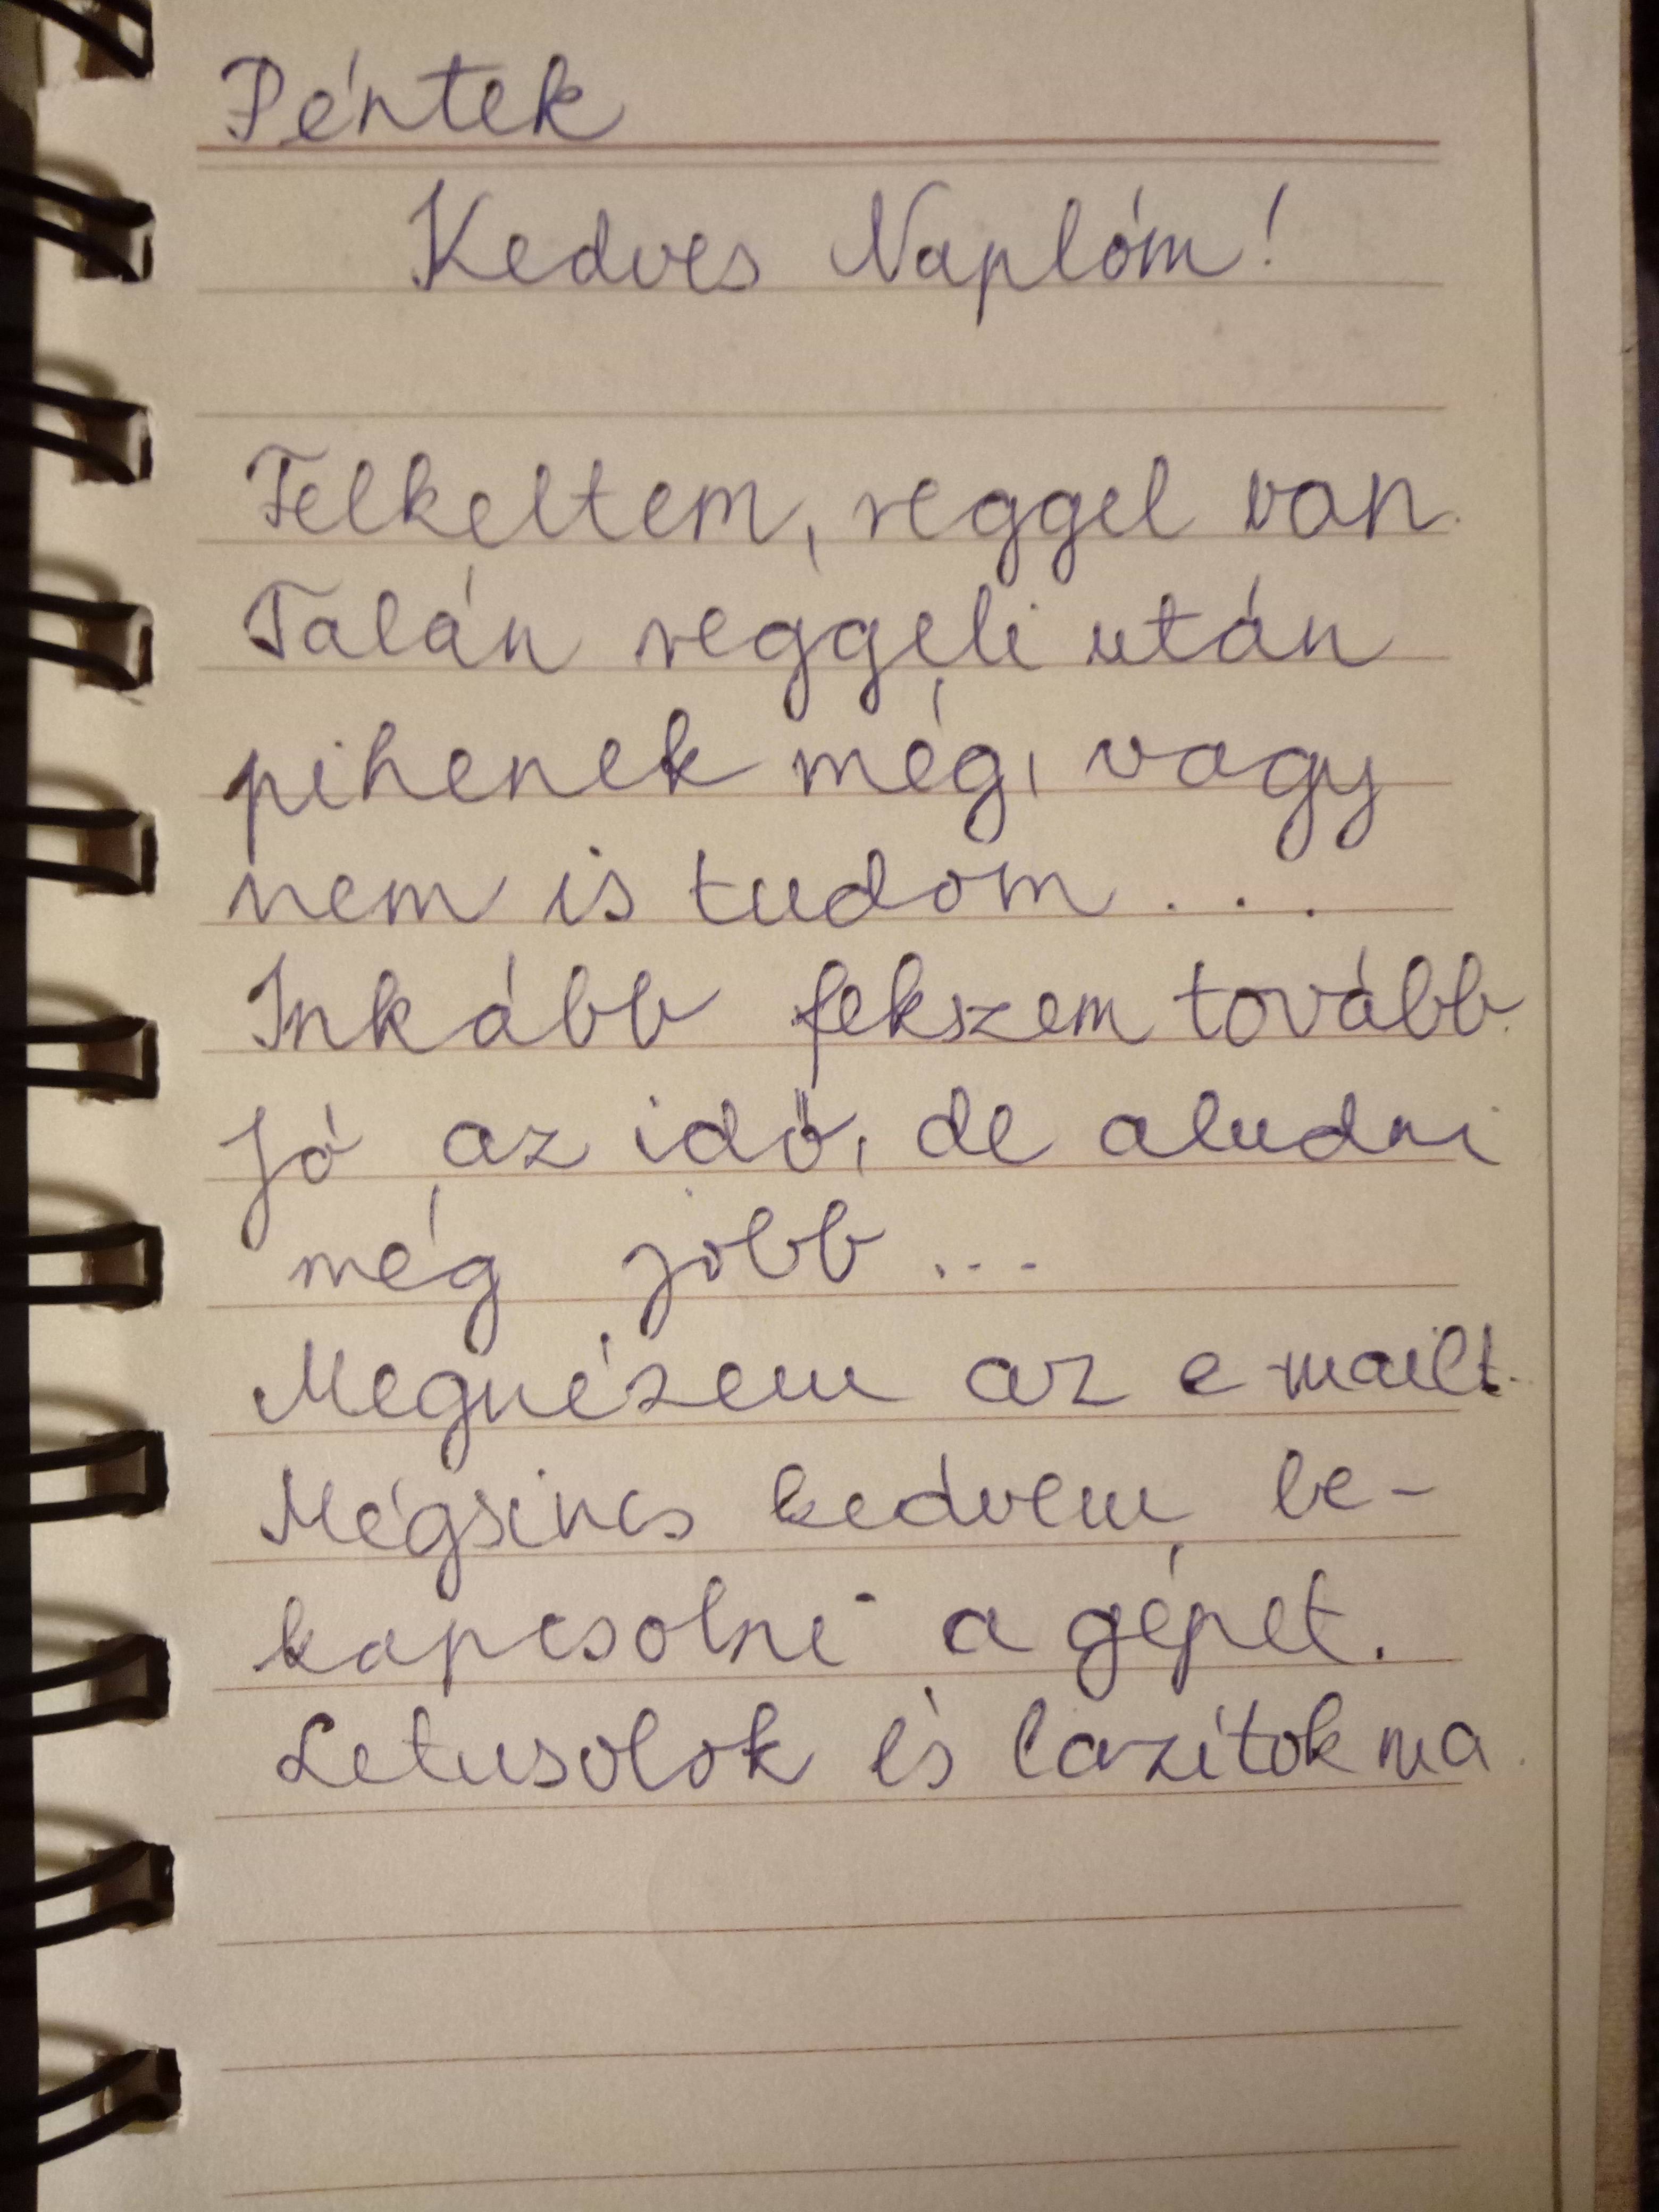 Péntek
Kedves Naplóm!
Felkeltem, reggel van.
Talán reggeli után
pihenek még, vagy
nem is tudom...
Inkább fekszem tovább.
Jó az idő, de aludni
még jobb...
Megnézem az e-mailt.
Mégsincs kedvem be-
kapcsolni a gépet.
Letusolok és lazítok ma.